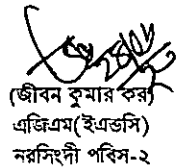 (জীবন কুমার কর)
এজিএম(ইএন্ডসি)
নরসিংদী পবিস-২